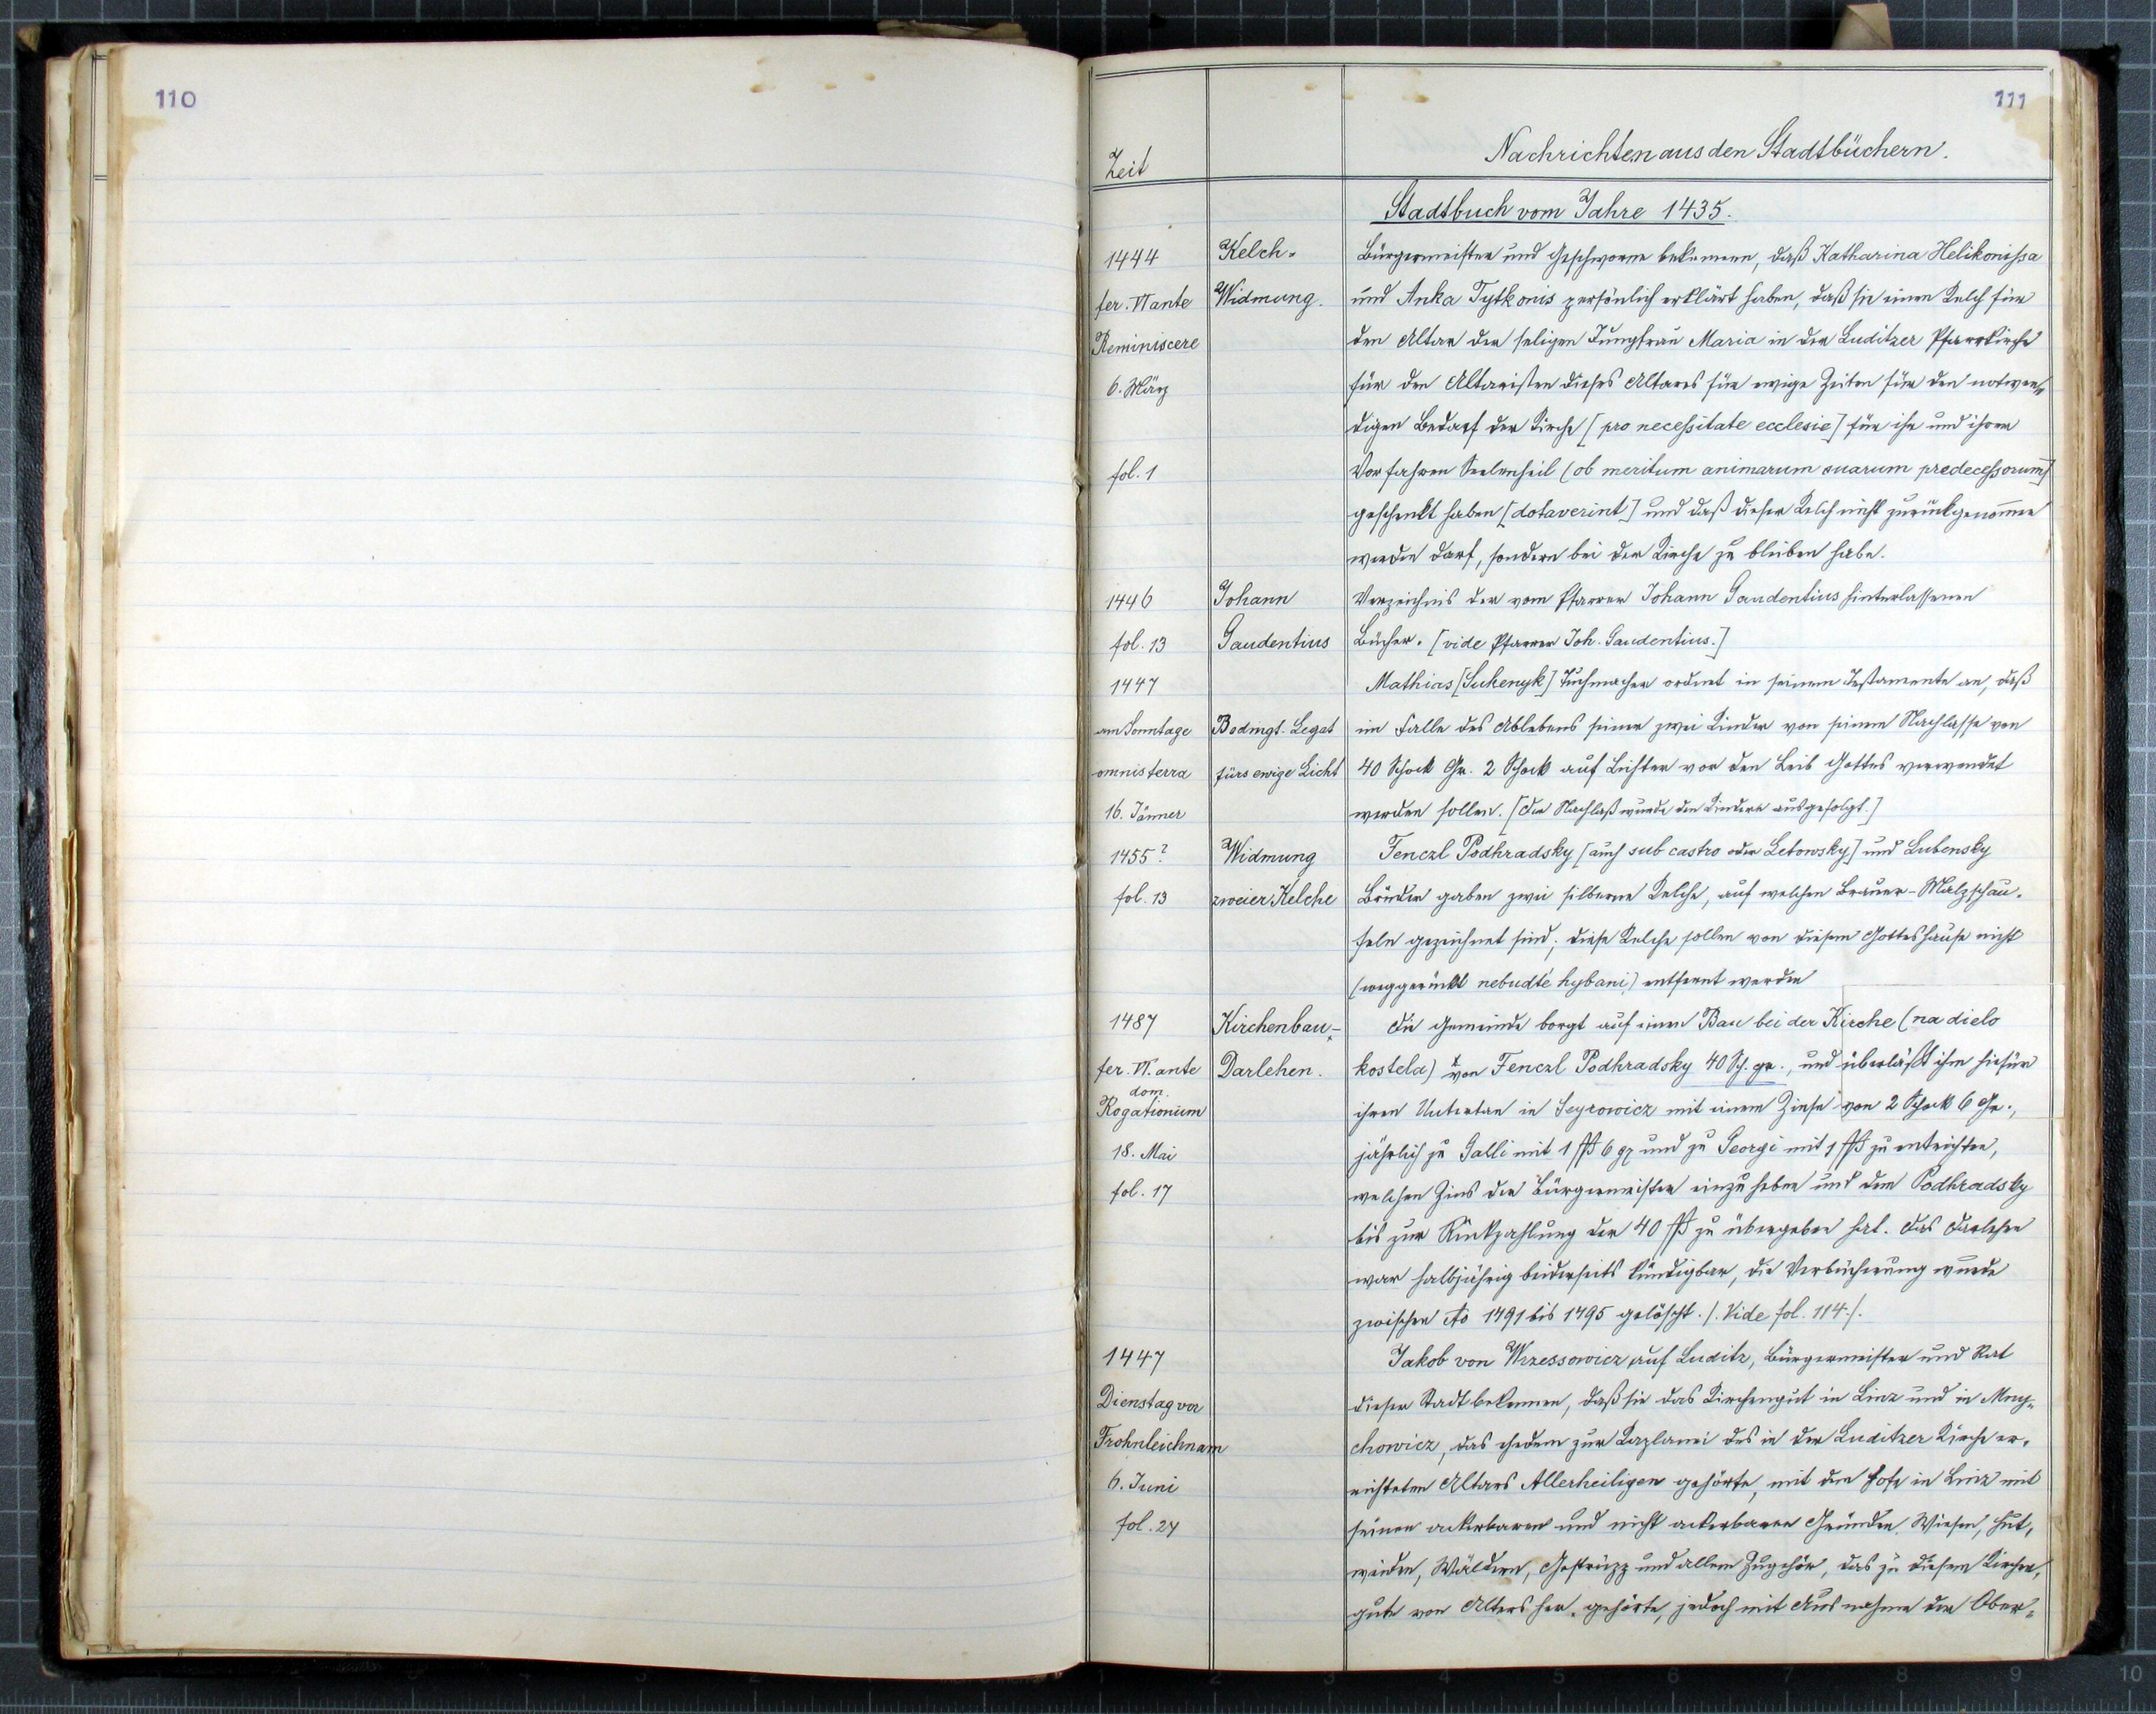 110
111
Zeit
Nachrichten aus den Stadtbüchern.
Stadtbuch vom Jahre 1435.
1444 Kelch- Bürgermeister und Geschworne bekennen, daß Katharina Helikonissa
fer. VI ante Widmung. und Anka Tytkonis persönlich erklärt haben, daß sie einen Kelch für
Reminiscere den Altar der seligen Jungfrau Maria in der Luditzer Pfarrkirche
6. März für den Altaristen dieses Altares für ewige Zeiten für den notwen-
digen Bedarf der Kirche [pro necessitate ecclesie] für ihr und ihrer
fol. 1 Vorfahren Seelenheil (ob meritum animarum suarum predecessorum)
geschenkt haben [dotaverint] und daß dieser Kelch nicht zurückgenommen
werden darf, sondern bei der Kirche zu bleiben habe.
1446 Johann Verzeichnis der vom Pfarrer Johann Gaudentius hinterlassenen
fol. 13 Gaudentius Bücher. [vide Pfarrer Joh. Gaudentius.]
1447 Mathias [Sukenyk] Tuchmacher ordnet in seinem Testamente an, daß
am Sonntage Bedingt. Legat im Falle des Ablebens seiner zwei Kinder von seinem Nachlasse von
omnis terra fürs ewige Licht 40 Schock Gr. 2 Schock auf Lichter vor den Leib Gottes verwendet
16. Jänner werden sollen. [Der Nachlaß wurde den Kindern ausgefolgt.]
1455? Widmung Fenczl Podhradsky [auch sub castro oder Letowsky] und Lubensky
fol. 13 zweier Kelche Brüder gaben zwei silberne Kelche, auf welchen Brauer-Malzschau-
feln gezeichnet sind; diese Kelche sollen von diesem Gotteshause nicht
(weggerückt nebudte hybani) entfernt werden
1487 Kirchenbau- Die Gemeinde borgt auf einen Bau bei der Kirche (na dielo
fer. VI. ante Darlehen. kostela) von Fenczl Podhradsky 40 Sch. gr., und überläßt ihm hiefür
dom.
Rogationum ihren Untertan in Seyrowicz mit einem Zinse von 2 Schock 6 Gr.,
18. Mai jährlich zu Galli mit 1 ßß 6 gr und zu Georgi mit 1 ßß zu entrichten,
fol. 17 welchen Zins der Bürgermeister einzuheben und dem Podhradsky
bis zur Rückzahlung der 40 ßß zu übergeben hat. Das Darlehen
war halbjährig beiderseits kündigbar, die Verbücherung wurde
zwischen Ao 1491 bis 1495 gelöscht. /. Vide fol. 114 ./.
1447 Jakob von Wrzessowicz auf Luditz, Bürgermeister und Rat
Dienstag vor dieser Stadt bekennen, daß sie das Kirchengut in Linz und in Mny-
Frohnleichnam chowicz, das ehedem zur Kaplanei des in der Luditzer Kirche er-
6. Juni richteten Altars Allerheiligen gehörte, mit dem Hofe in Linz mit
fol. 24 seinen ackerbaren und nicht ackerbaren Gründen, Wiesen, Hut-
weiden, Wäldern, Gestrüpp und allem Zugehör, das zu diesem Kirchen-
gute von Alters her gehörte, jedoch mit Ausnahme der Ober-